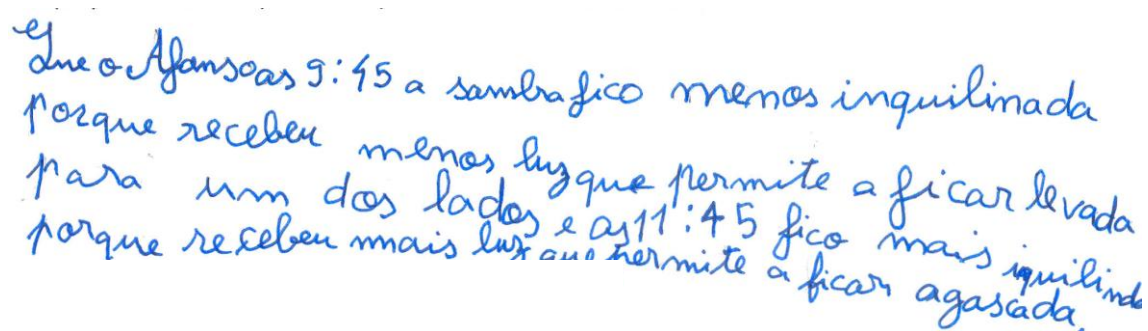 Que o Afonso as 9:45 a sombra fico menos inquilinada
porque recebeu menos luz que permite a ficar levada
para um dos lados e as 11:45 fico mais iquilinda
porque recebeu mais luz que permite a ficar agascada.